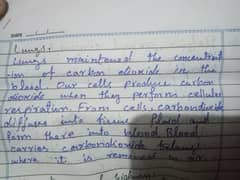 DATE
Lungs:
Lungs maintained the concentrat
ion of carbon dioxide in the
blood. Our cells produce carbon
dioxide when they perform cellular
respiration. From cells, carbondioxide
diffuses into tissue fluid and
form there into blood. Blood
carries carbondioxide to lungs
where it is removed in air.